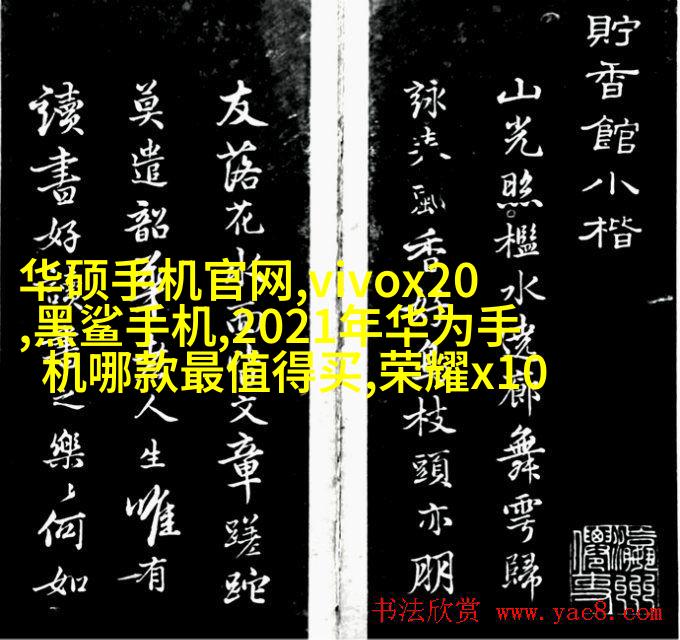 貯香館小楷
山光照檻水繞廊舞雩歸
詠風香好鳥枝頭亦朋
友落花水面文章蹉跎
莫遣韶華老人生唯有
讀書好讀書之樂樂何如
华硕手机官网,vivox20
,黑鲨手机,2021年华为手
机哪款最值得买,荣耀x10
书法欣赏 www.yac8.com